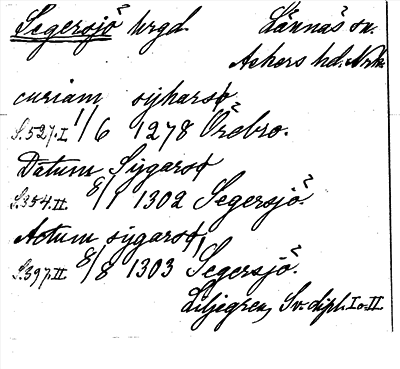 Segersjö hrgd. Lännäs sn.
Askers hd. Nrke
curiam sigharsø
S.527.I 1/6 1278 Örebro.
Datum Siggarsø
S.354.II. 8/1 1302 Segersjö.
Actum siggarsø,
S.397.II 8/8 1303 Segersjö.
Liljegren, Sv. dipl. I o. II.